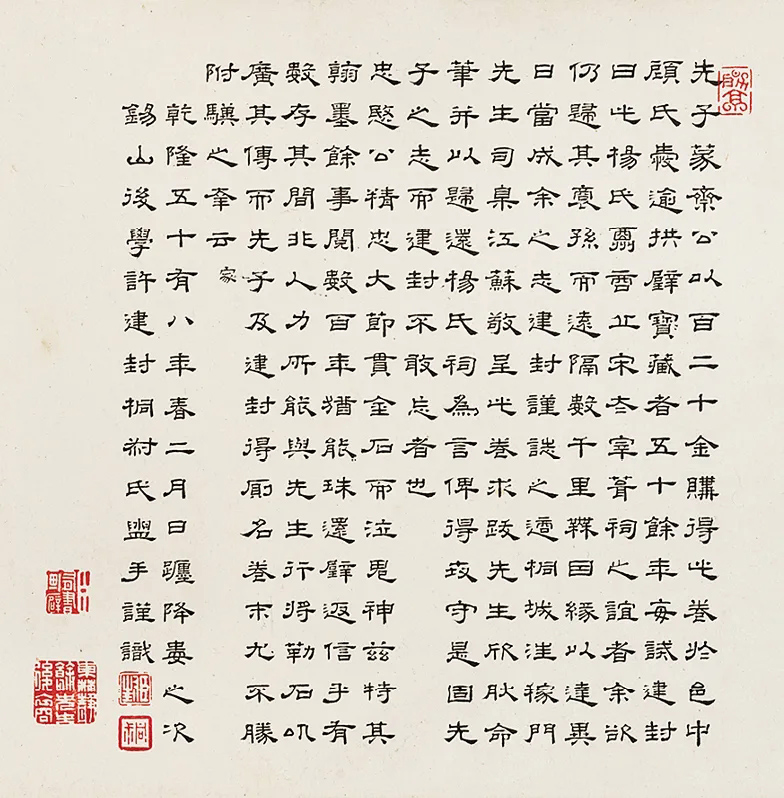 先子蒙齋公以百二十金購得此卷於邑中
顧氏愛逾拱璧寶藏者五十餘年每誡建封
曰此楊氏商丘宋太宰葺祠之誼者余欲
仍歸其裔孫而遠隔數千里鮮因緣以達異
日當成余之志建封謹誌之適桐城汪稼門
先生司臬江蘇敬呈此卷求跋先生欣肰命
筆并以歸還楊氏祠為言俾得守是固先
子之志而建封不敢忘者也
忠愍公精忠大節貫金石而泣鬼神茲特其
翰墨餘事閱數百年猶能珠還璧返信乎有
數存其間非人力所能與先生行將勒石以
廣其傳而先子及建封得廁名卷末尤不勝
附驥之幸云 家
乾隆五十有八年春二月日躔降婁之次
錫山後學許建封桐柎氏盥手謹識